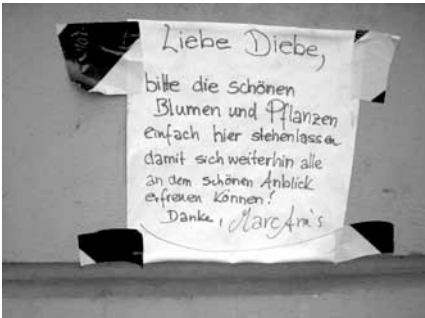 Liebe Diebe,
bitte die schönen
Blumen und Pflanzen
einfach hier stehenlassen
damit sich weiterhin alle
an dem schönen Anblick
erfreuen können!
Danke,